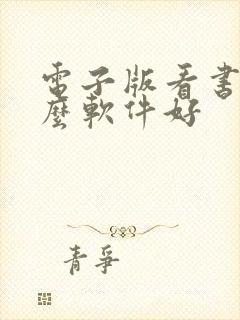 電子版看書
麼軟件好
青爭